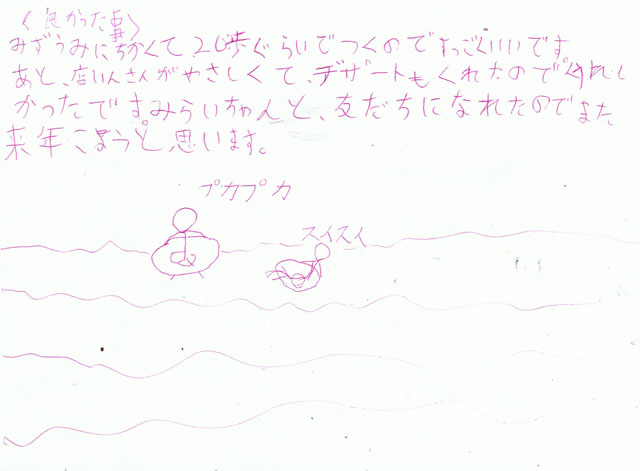 〈良かった事〉
みずうみにちかくて、20歩ぐらいでつくのですっごくいいです
あと、店いんさんがやさしくて、デザートもくれたのでうれし
かったです。みらいちゃんと、友だちになれたのでまた
来年こようと思います。
プカプカ
スイスイ